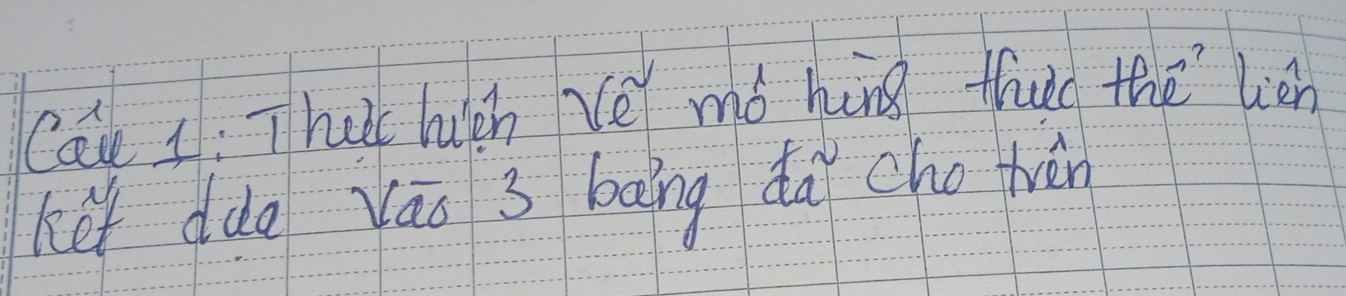 Câu 1: Thực hiện vẽ mô hìng thực thể liên
kết dựa vào 3 bảng đã cho trên